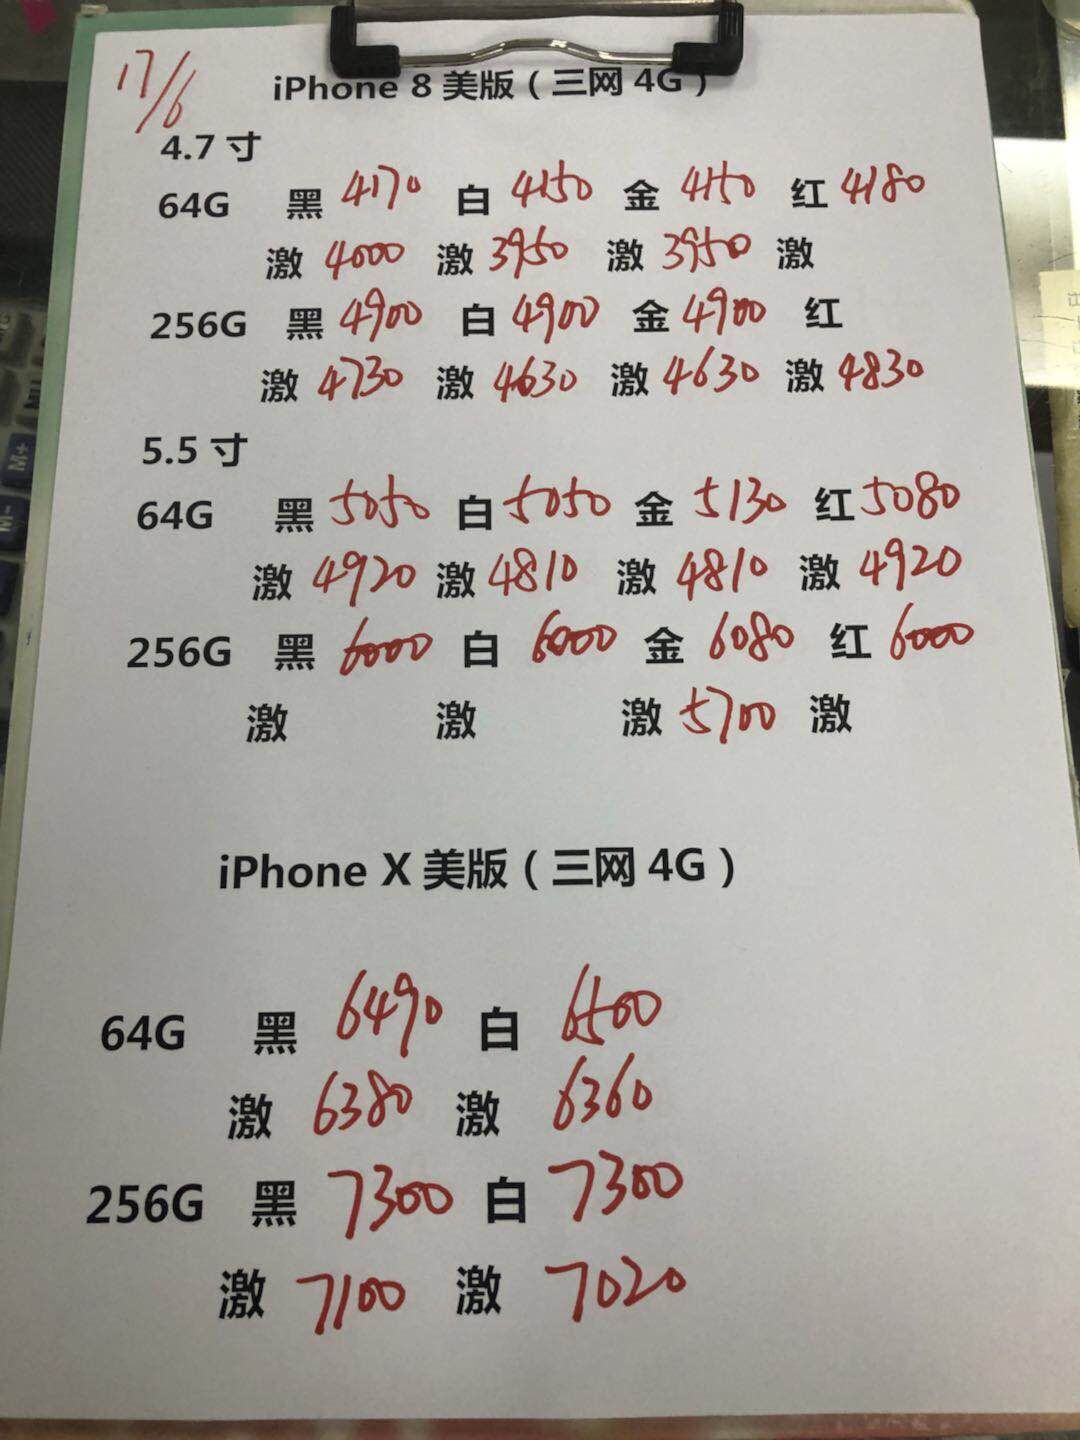 17/6
iPhone 8 美版（三网 4G）
4.7 寸
64G 黑 4170 白 4150 金 4150 红 4180
激 4000 激 3950 激 3950 激
256G 黑 4900 白 4900 金 4900 红
激 4730 激 4630 激 4630 激 4830
5.5 寸
64G 黑 5050 白 5050 金 5130 红 5080
激 4920 激 4810 激 4810 激 4920
256G 黑 6000 白 6000 金 6080 红 6000
激 激 激 5700 激
iPhone X 美版（三网 4G）
64G 黑 6490 白 6500
激 6380 激 6360
256G 黑 7300 白 7300
激 7100 激 7020
M+